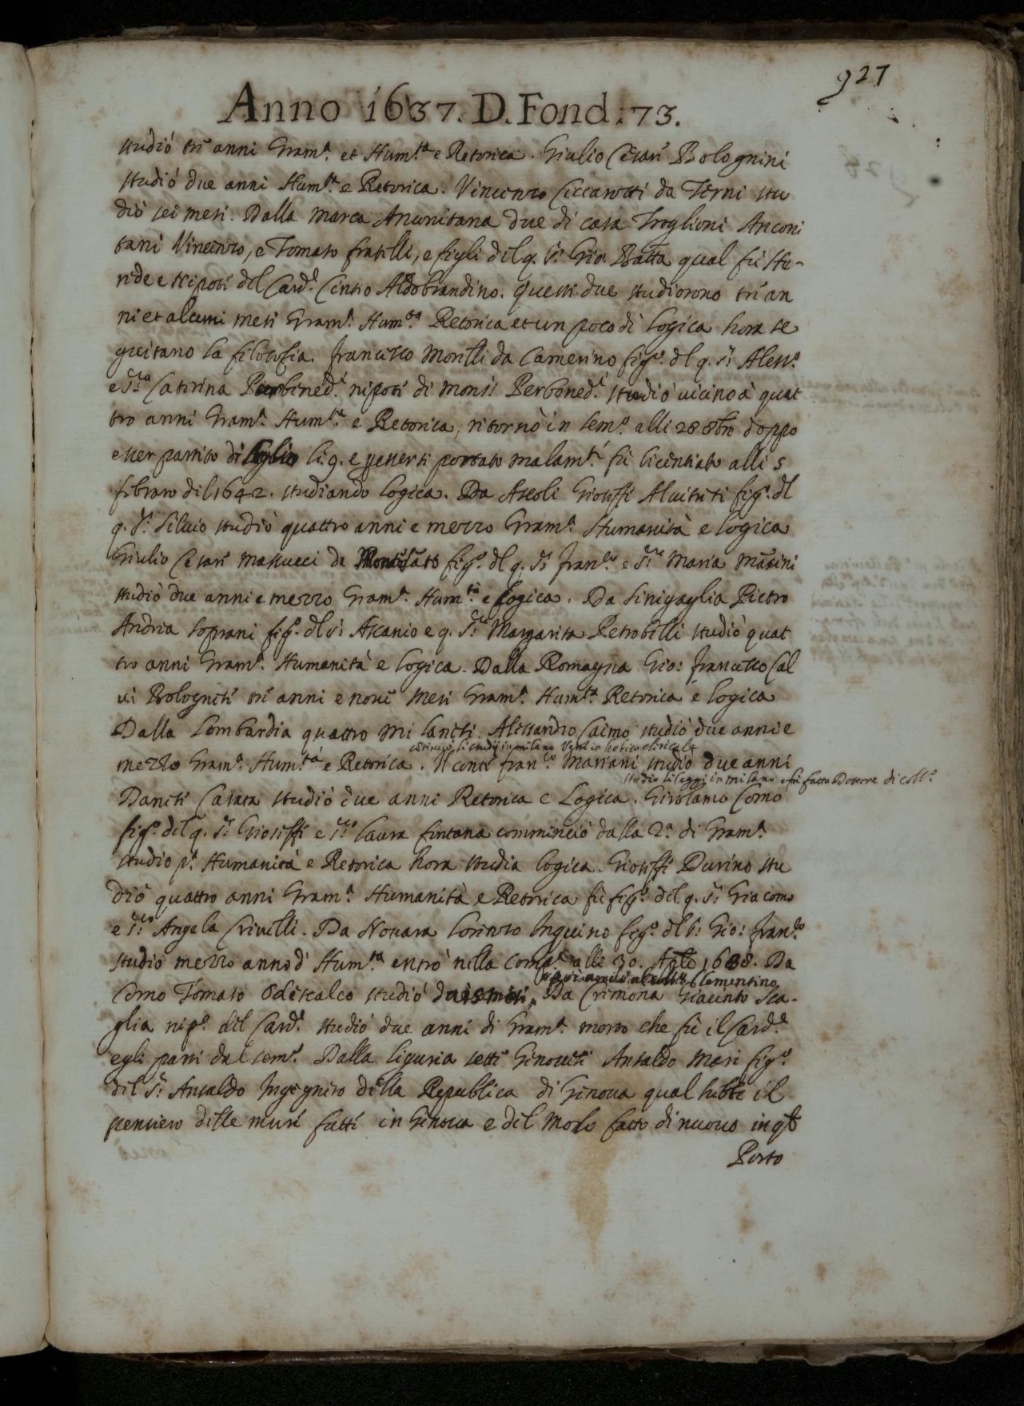 927
Anno 1637. D. Fond: 73.
studiò trè anni Gram.ª et Hum.tà e Retorica. Giulio Cesare Bolognini
studiò due anni Hum.tà e Retorica. Vincenzo Ciccarotti da Terni stu
diò sei mesi. Dalla Marca Anconitana due di casa Troglioni Anconi
tani Vincenzo, e Tomaso fratelli, e figli del q. S.r Gio: Batta qual fù
e nepoti del Card.l Cintio Aldobrandino. Questi due studiorono trè an
ni et alcuni mesi Gram.ª Hum.tà Retorica et un poco di Logica hora se
guitano la filosofia. Francesco Morelli da Camerino fig.o del q. S.r Aless.o
e S.ra Caterina Perbened.i nipoti di Mons.r Perbened.i studiò vicino à quat
tro anni Gram.ª Hum.tà e Retorica, ritornò in Sem.o alli 28 8bre doppo
esser partito di luglio li q. e essersi portato malam.te fù licentiato alli 5
febraro del 1642. studiando Logica. Da Ascoli Gioseffe Alvitreti fig.o del
q. S.r Silvio studiò quattro anni e mezzo Gram.ª Humanità e Logica
Giulio Cesare Massucci de fig.o del q. S.r Fran.co e S.ra Maria Massini
studiò due anni e mezzo Gram.ª Hum.tà e Logica. Da Sinigaglia Pietro
Andrea Soprani fig.o del S.r Ascanio e q. S.ra Margarita Petrobelli studiò quat
tro anni Gram.ª Humanità e Logica. Dalla Romagna Gio: Francesco Cal
vi Bolognese trè anni e nove mesi Gram.ª Hum.tà Retorica e Logica
Dalla Lombardia quattro Milanesi. Alessandro Caimo studiò due anni e
mezzo Gram.ª Hum.tà e Retorica. Il conte Fran.co Mariani studiò due anni
studiò li leggi in Milano e fù fatto Dottore di coll.o
Danese Casata studiò due anni Retorica e Logica. Girolamo Como
fig.o del q. S.r Gioseffe e S.ra Laura Fontana comminciò dalla 2.ª di Gram.ª
studiò p.ª Humanità e Retorica hora studia Logica. Gioseffe Durino stu
diò quattro anni Gram.ª Humanità e Retorica fù fig.o del q. S.r Giacomo
e S.ra Angela Crivelli. Da Novara Lorenzo Inquino fig.o del S.r Gio: Fran.co
studiò mezzo anno d' Hum.tà entrò nella Comp.ª alli 30. Aple 1638. Da
Clementino
Como Tomaso Odescalco studiò Da Cremona Giacinto Sca-
glia nip.e del Card.l studiò due anni di Gram.ª morto che fù il Card.l
egli partì dal sem.o Dalla Liguria sette Genovesi Ansaldo Mari fig.o
del S.r Ansaldo Ingegniro della Republica di Genova qual hebbe il
pensiero delle muri fatti in Genova e del Molo fatto di nuovo in q.to
Porto